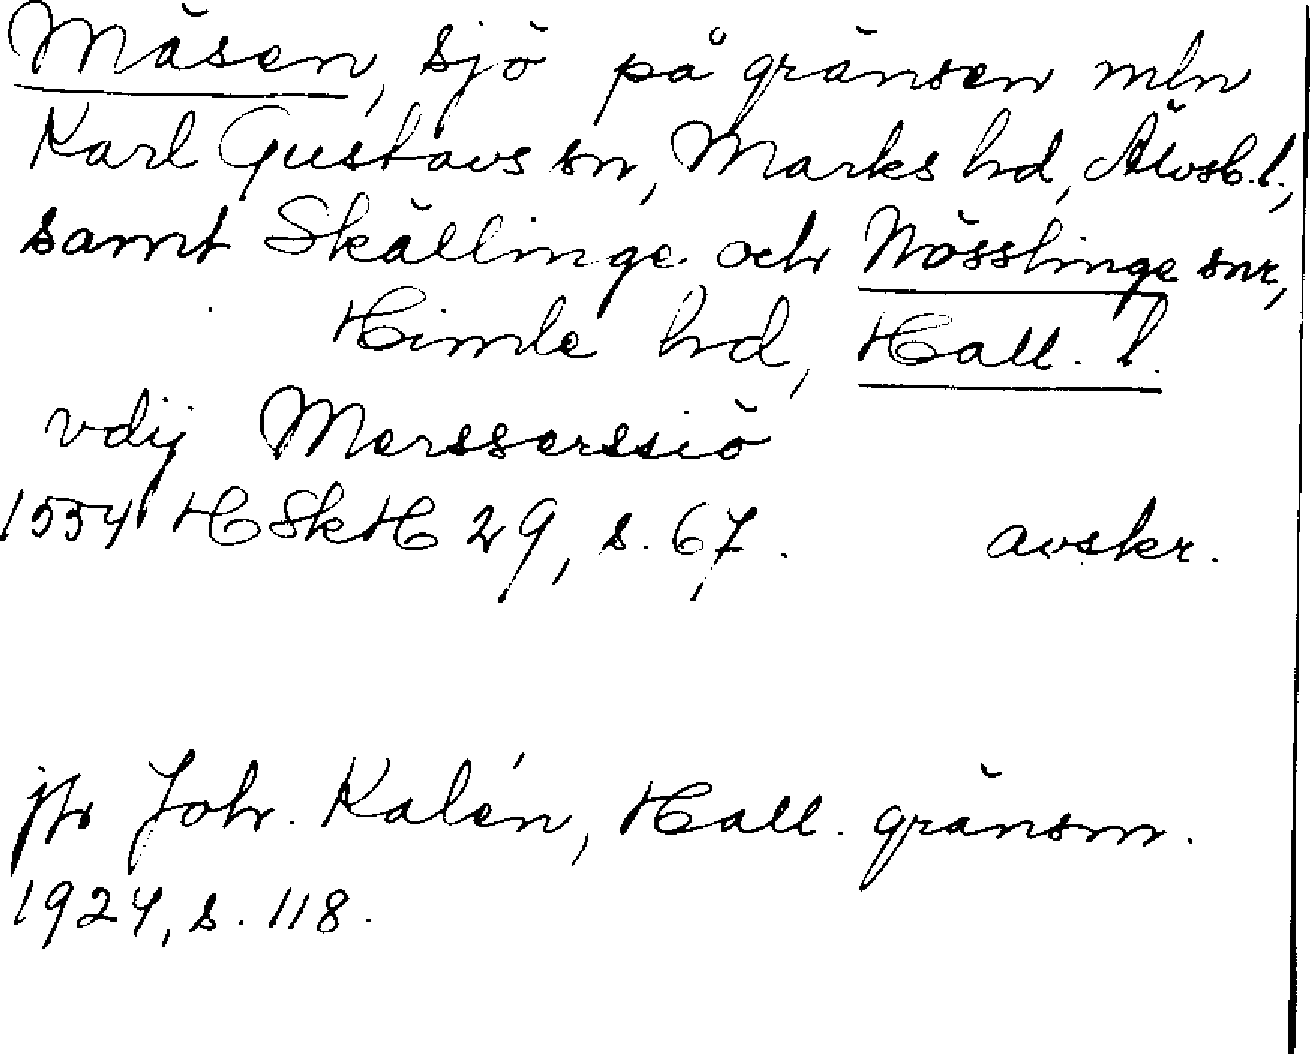 Mäsen, sjö på gränsen mln
Karl Gustavs sn, Marks hd, Älvsb. l.,
samt Skällinge och Nösslinge snr,
Himle hd, Hall. l.
vdij Mersserssiö
1554 HSkH 29, s. 67. avskr.
jfr Joh. Kalén, Hall. gränsm.
1924, s. 118.